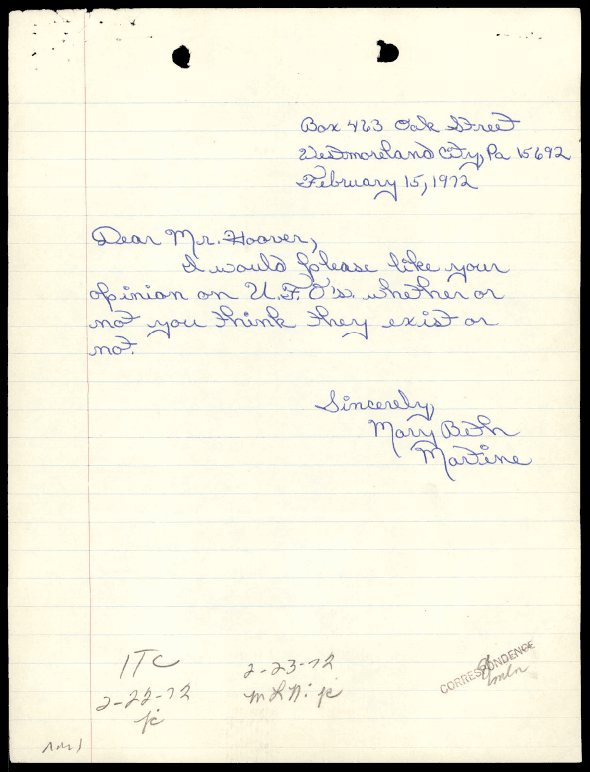 Box 463 Oak Street
Westmoreland City, Pa 15692
February 15, 1972
Dear Mr. Hoover,
I would please like your
opinion on U.F.O's. whether or
not you think they exist or
not.
Sincerely,
Mary Beth
Martine
ITC
2-22-72
jc
2-23-72
CORRESPONDENCE